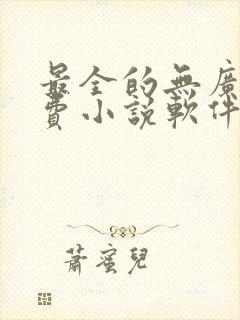 最全的無廣
費小說軟件
蕭蜜兒